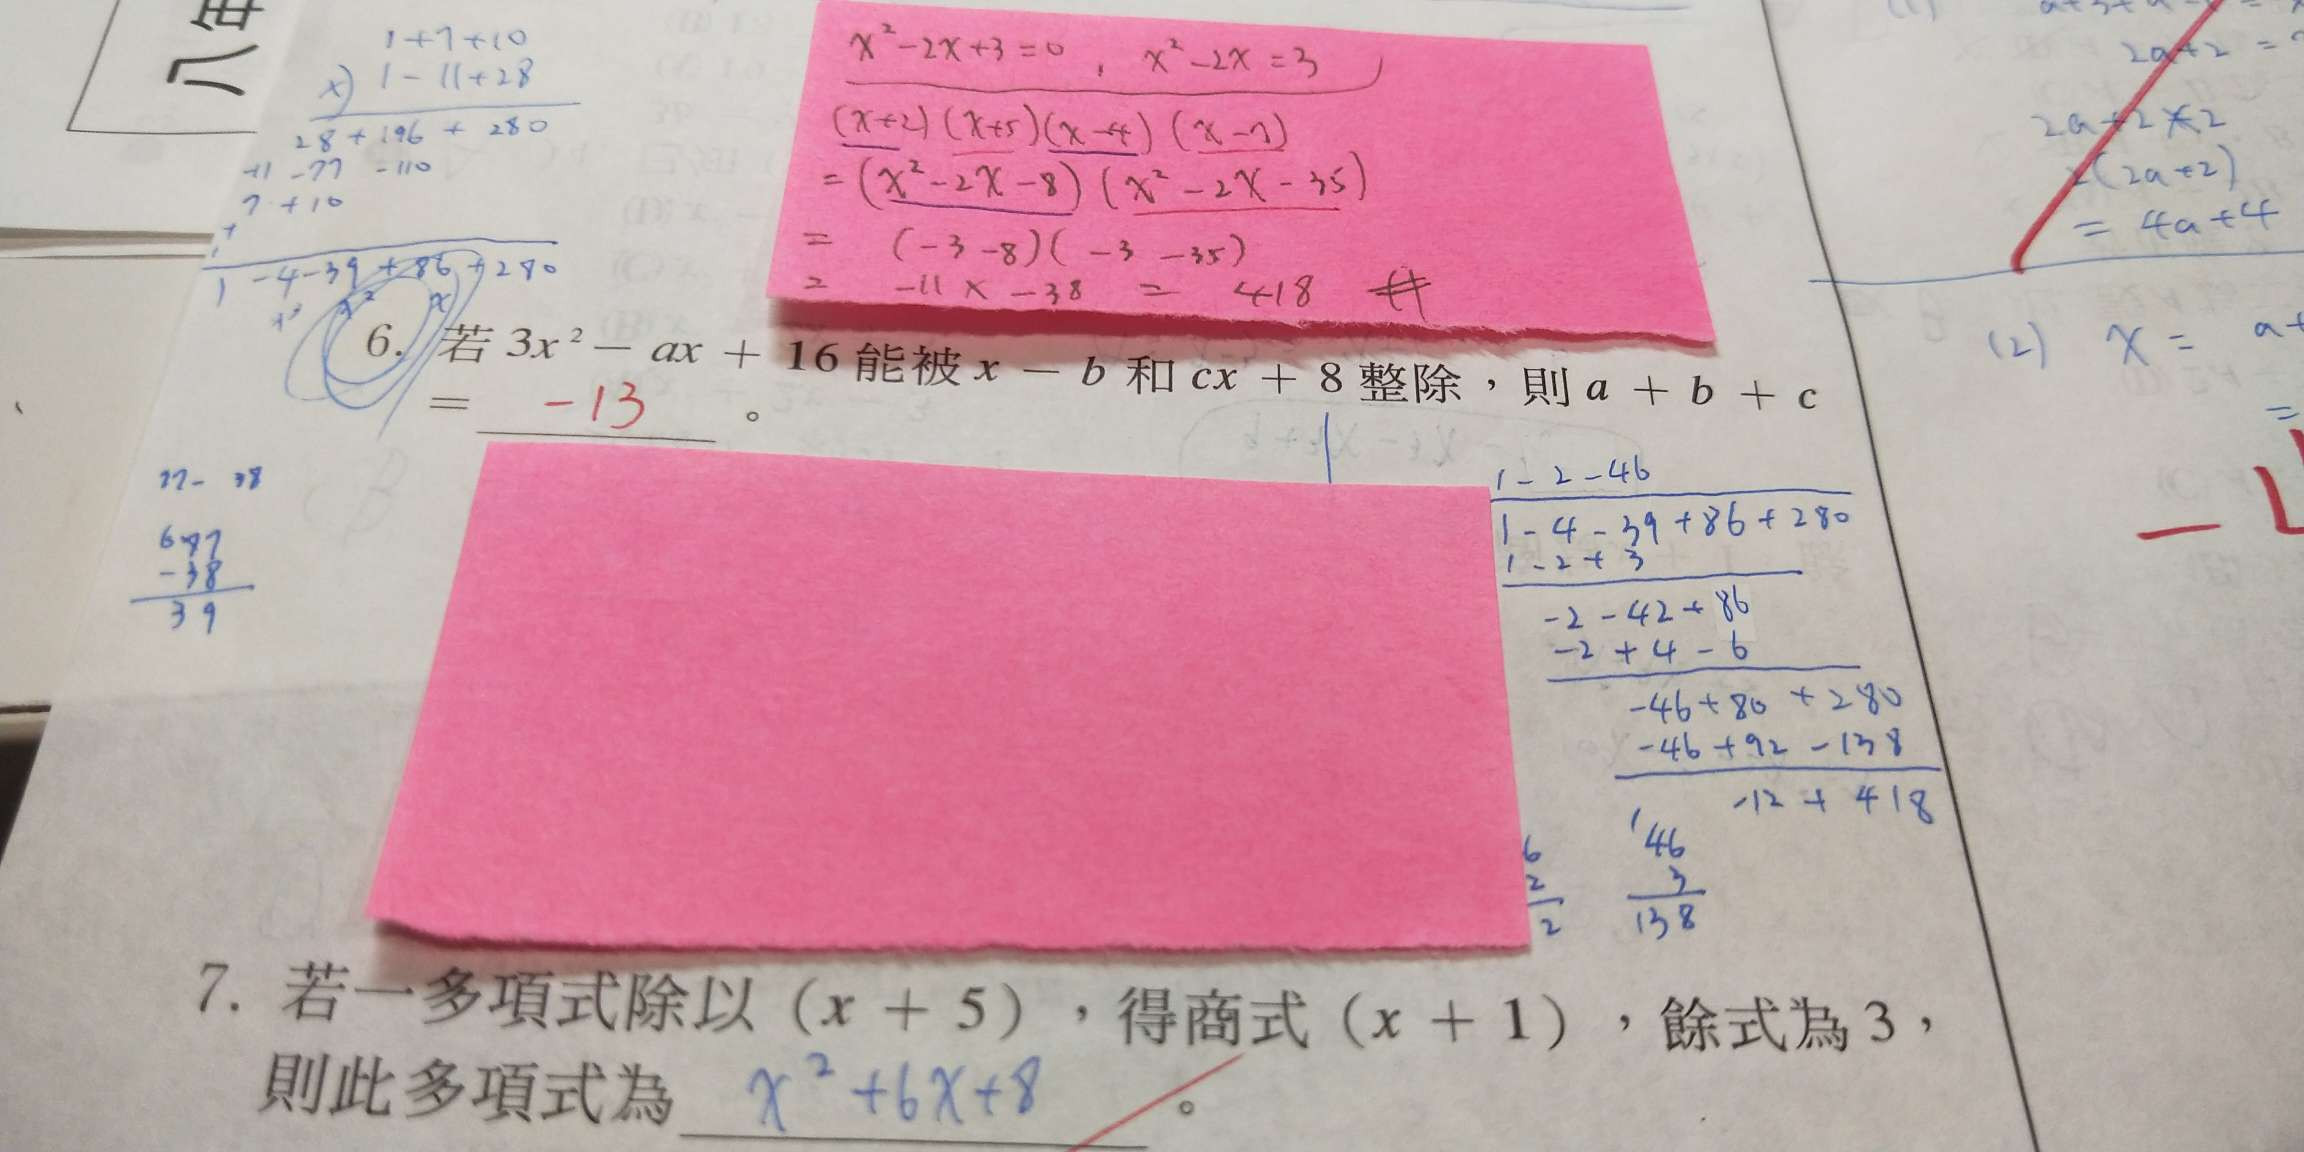 1+7+10
x) 1-11+28
28+196+280
-11-77-110
7+10
1
1-4-39+86+280
x³ x² x
x²-2x+3=0, x²-2x=3
(x+2)(x+5)(x-4)(x-7)
=(x²-2x-8)(x²-2x-35)
= (-3-8)(-3-35)
= -11×-38 = 418 #
6. 若3x²-ax+16能被x-b和cx+8整除，則a+b+c
= -13 。
77-38
677
-38
39
1-2-46
1-4-39+86+280
1-2+3
-2-42+86
-2+4-6
-46+80+280
-46+92-138
-12+418
6
2
2
1
46
3
138
7. 若一多項式除以(x+5)，得商式(x+1)，餘式為3，
則此多項式為 x²+6x+8 。
2a+2=
2a+2×2
(2a+2)
=4a+4
(2) x=
=